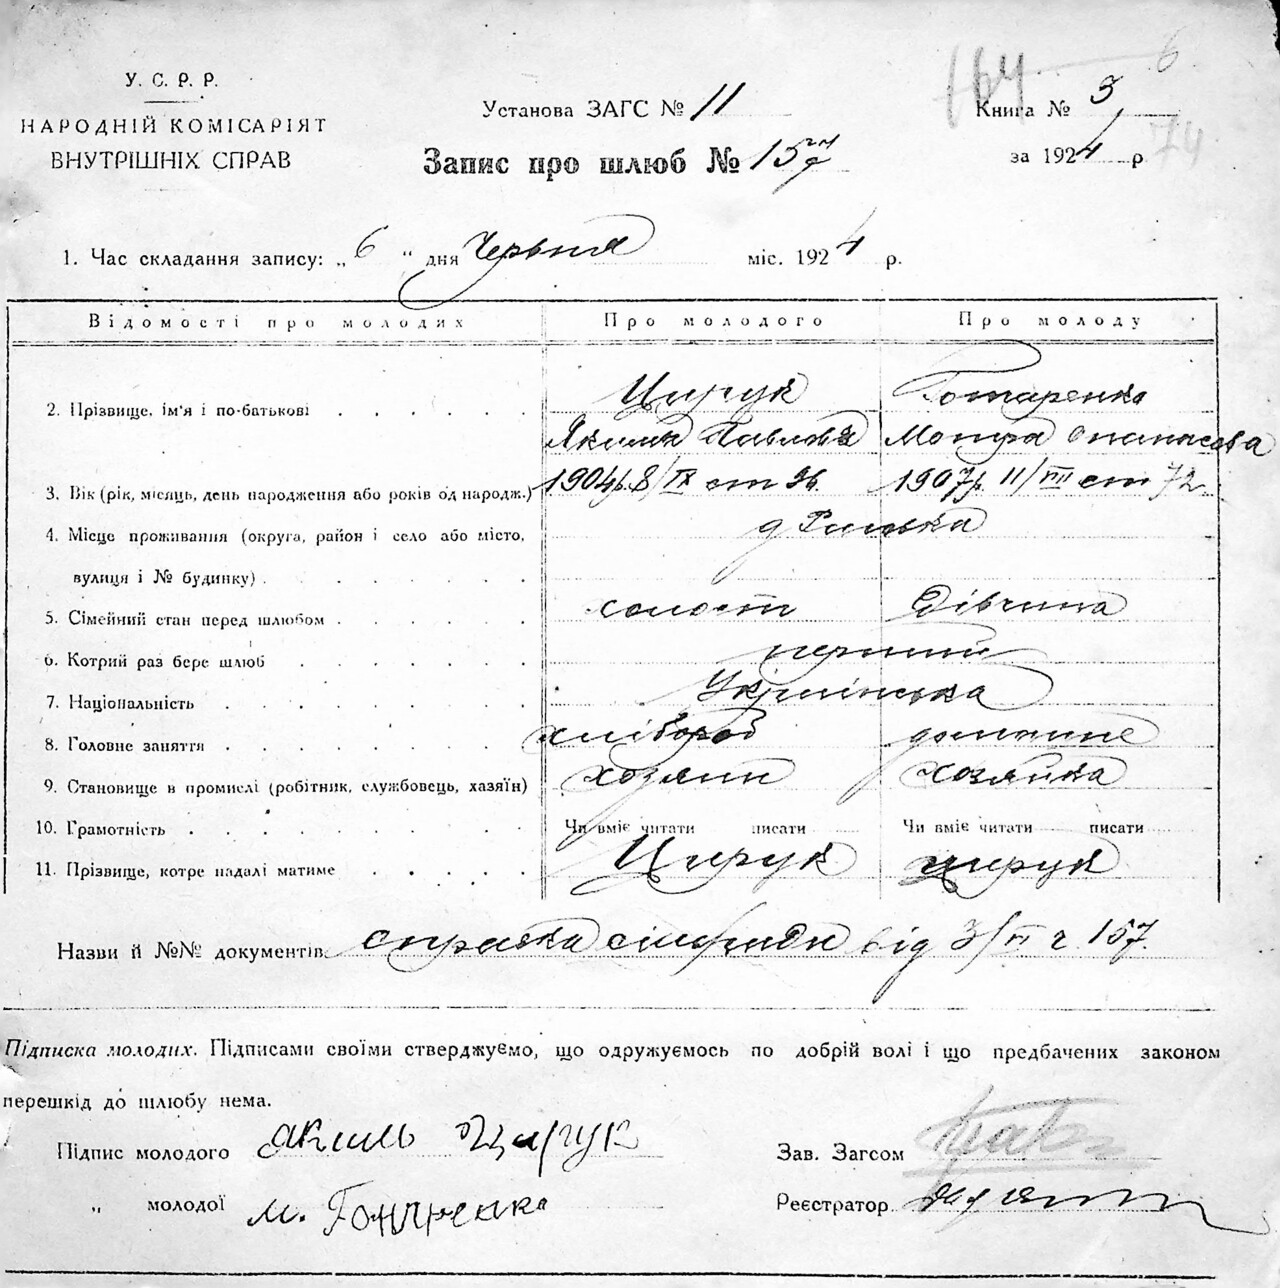 164 6
У. С. Р. Р.
НАРОДНІЙ КОМІСАРІЯТ
ВНУТРІШНІХ СПРАВ
Установа ЗАГС № 11
Запис про шлюб № 157
Книга № 3
за 1924 р
74
1. Час складання запису: „ 6 “ дня Червня міс. 1924 р.
Відомості про молодих Про молодого Про молоду
2. Прізвище, ім'я і по-батькові Цирук Гончаренко
Яким Павлов Мотря Опанасова
3. Вік (рік, місяць, день народження або років од народж.) 1904р. 8/IX ст 1907р. 11/ ст 72
4. Місце проживання (округа, район і село або місто,
вулиця і № будинку)
5. Сімейний стан перед шлюбом холост Дівчина
6. Котрий раз бере шлюб перший
7. Національність Українська
8. Головне заняття хлібороб домашнє
9. Становище в промислі (робітник, службовець, хазяїн) хозяин хозяйка
10. Грамотність Чи вміє читати писати Чи вміє читати писати
11. Прізвище, котре надалі матиме Цирук Цирук
Назви й №№ документів справка сільради від 3/VI ч 157
Підписка молодих. Підписами своїми стверджуємо, що одружуємось по добрій волі і що предбачених законом
перешкід до шлюбу нема.
Підпис молодого Якимъ Цирук
Зав. Загсом
„ молодої М. Гончренко
Реєстратор